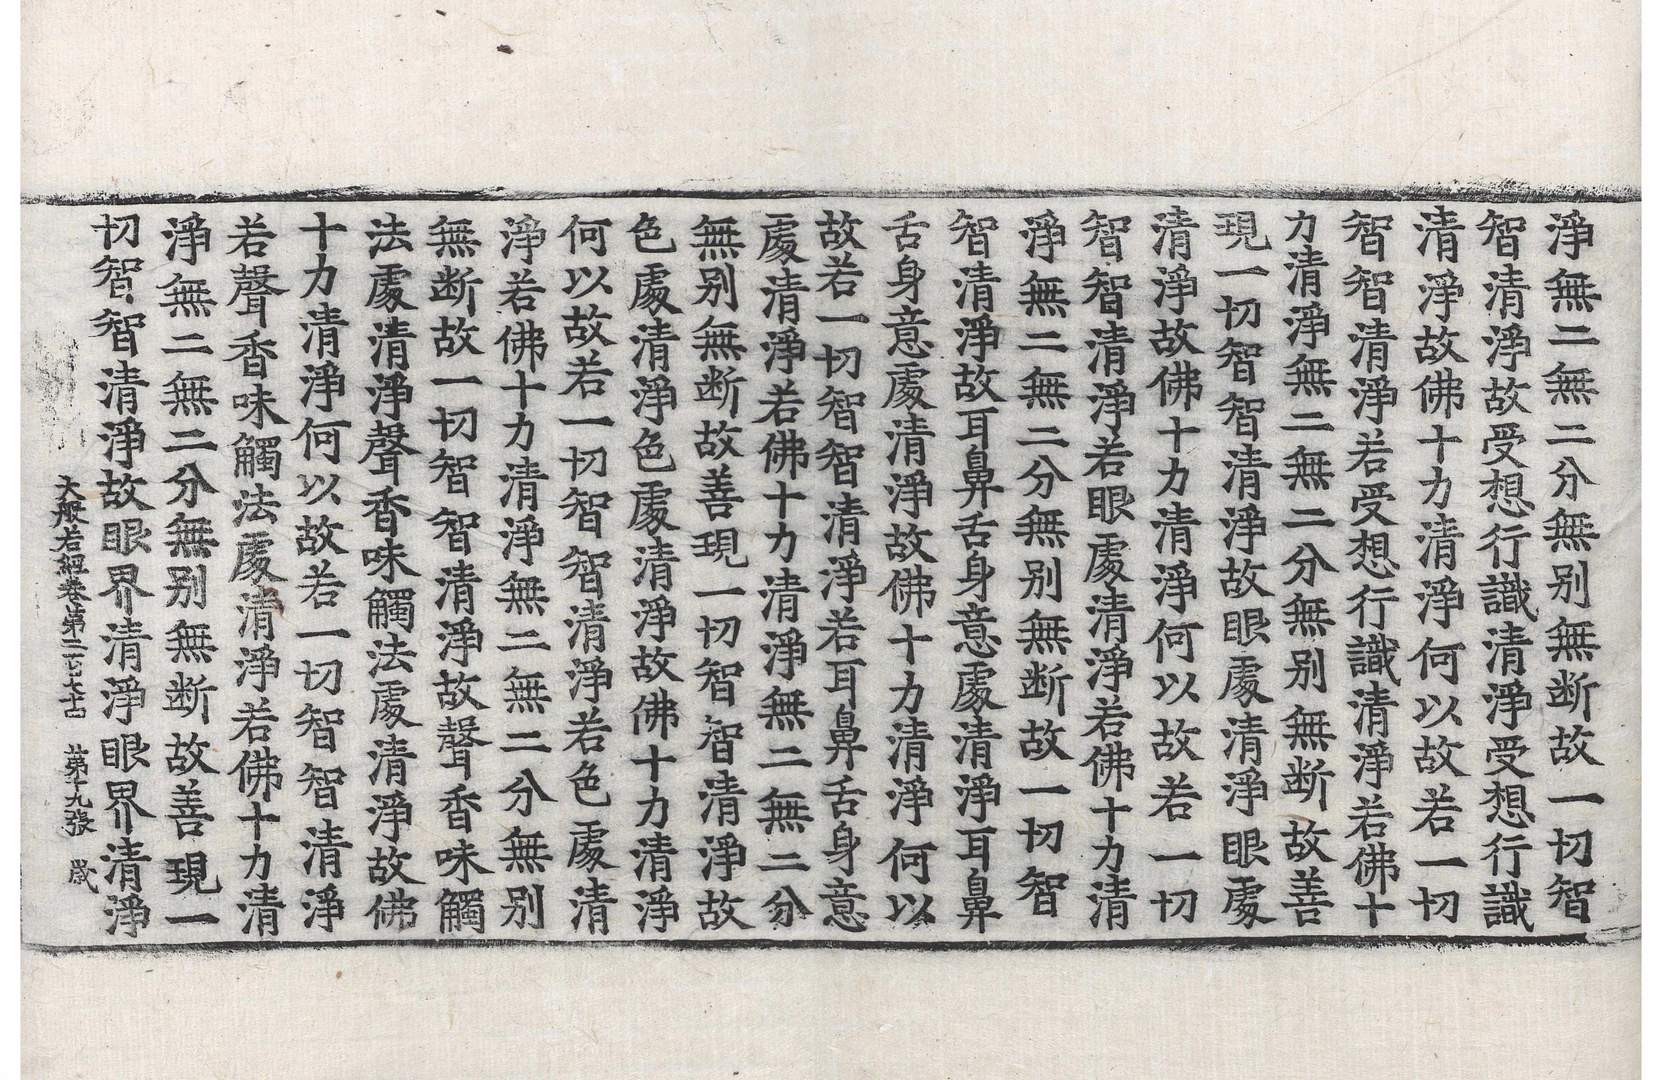 淨無二無二分無別無断故一切智
智清淨故受想行識清淨受想行識
清淨故佛十力清淨何以故若一切
智智清淨若受想行識清淨若佛十
力清淨無二無二分無別無断故善
現一切智智清淨故眼處清淨眼處
清淨故佛十力清淨何以故若一切
智智清淨若眼處清淨若佛十力清
淨無二無二分無別無断故一切智
智清淨故耳鼻舌身意處清淨耳鼻
舌身意處清淨故佛十力清淨何以
故若一切智智清淨若耳鼻舌身意
處清淨若佛十力清淨無二無二分
無別無断故善現一切智智清淨故
色處清淨色處清淨故佛十力清淨
何以故若一切智智清淨若色處清
淨若佛十力清淨無二無二分無別
無断故一切智智清淨故聲香味觸
法處清淨聲香味觸法處清淨故佛
十力清淨何以故若一切智智清淨
若聲香味觸法處清淨若佛十力清
淨無二無二分無別無断故善現一
切智智清淨故眼界清淨眼界清淨
大般若經卷第二百七十四 第十九張 歲